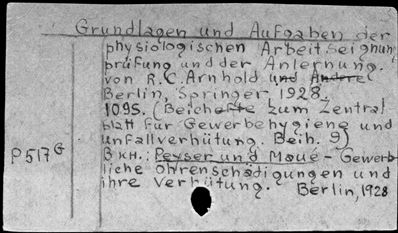 Grundlagen und Aufgaben der
physiologischen Arbeitseignun
prüfung und der Anlernung.
von R.C. Arnhold und Andere
Berlin, Springer 1928.
109S. (Beihefte zum Zentral
blatt für Gewerbehygiene und
Unfallverhütung. Beih. 9)
P517G В кн.: Peyser und Maué - Gewerb
liche Ohrenschädigungen und
ihre Verhütung. Berlin, 1928